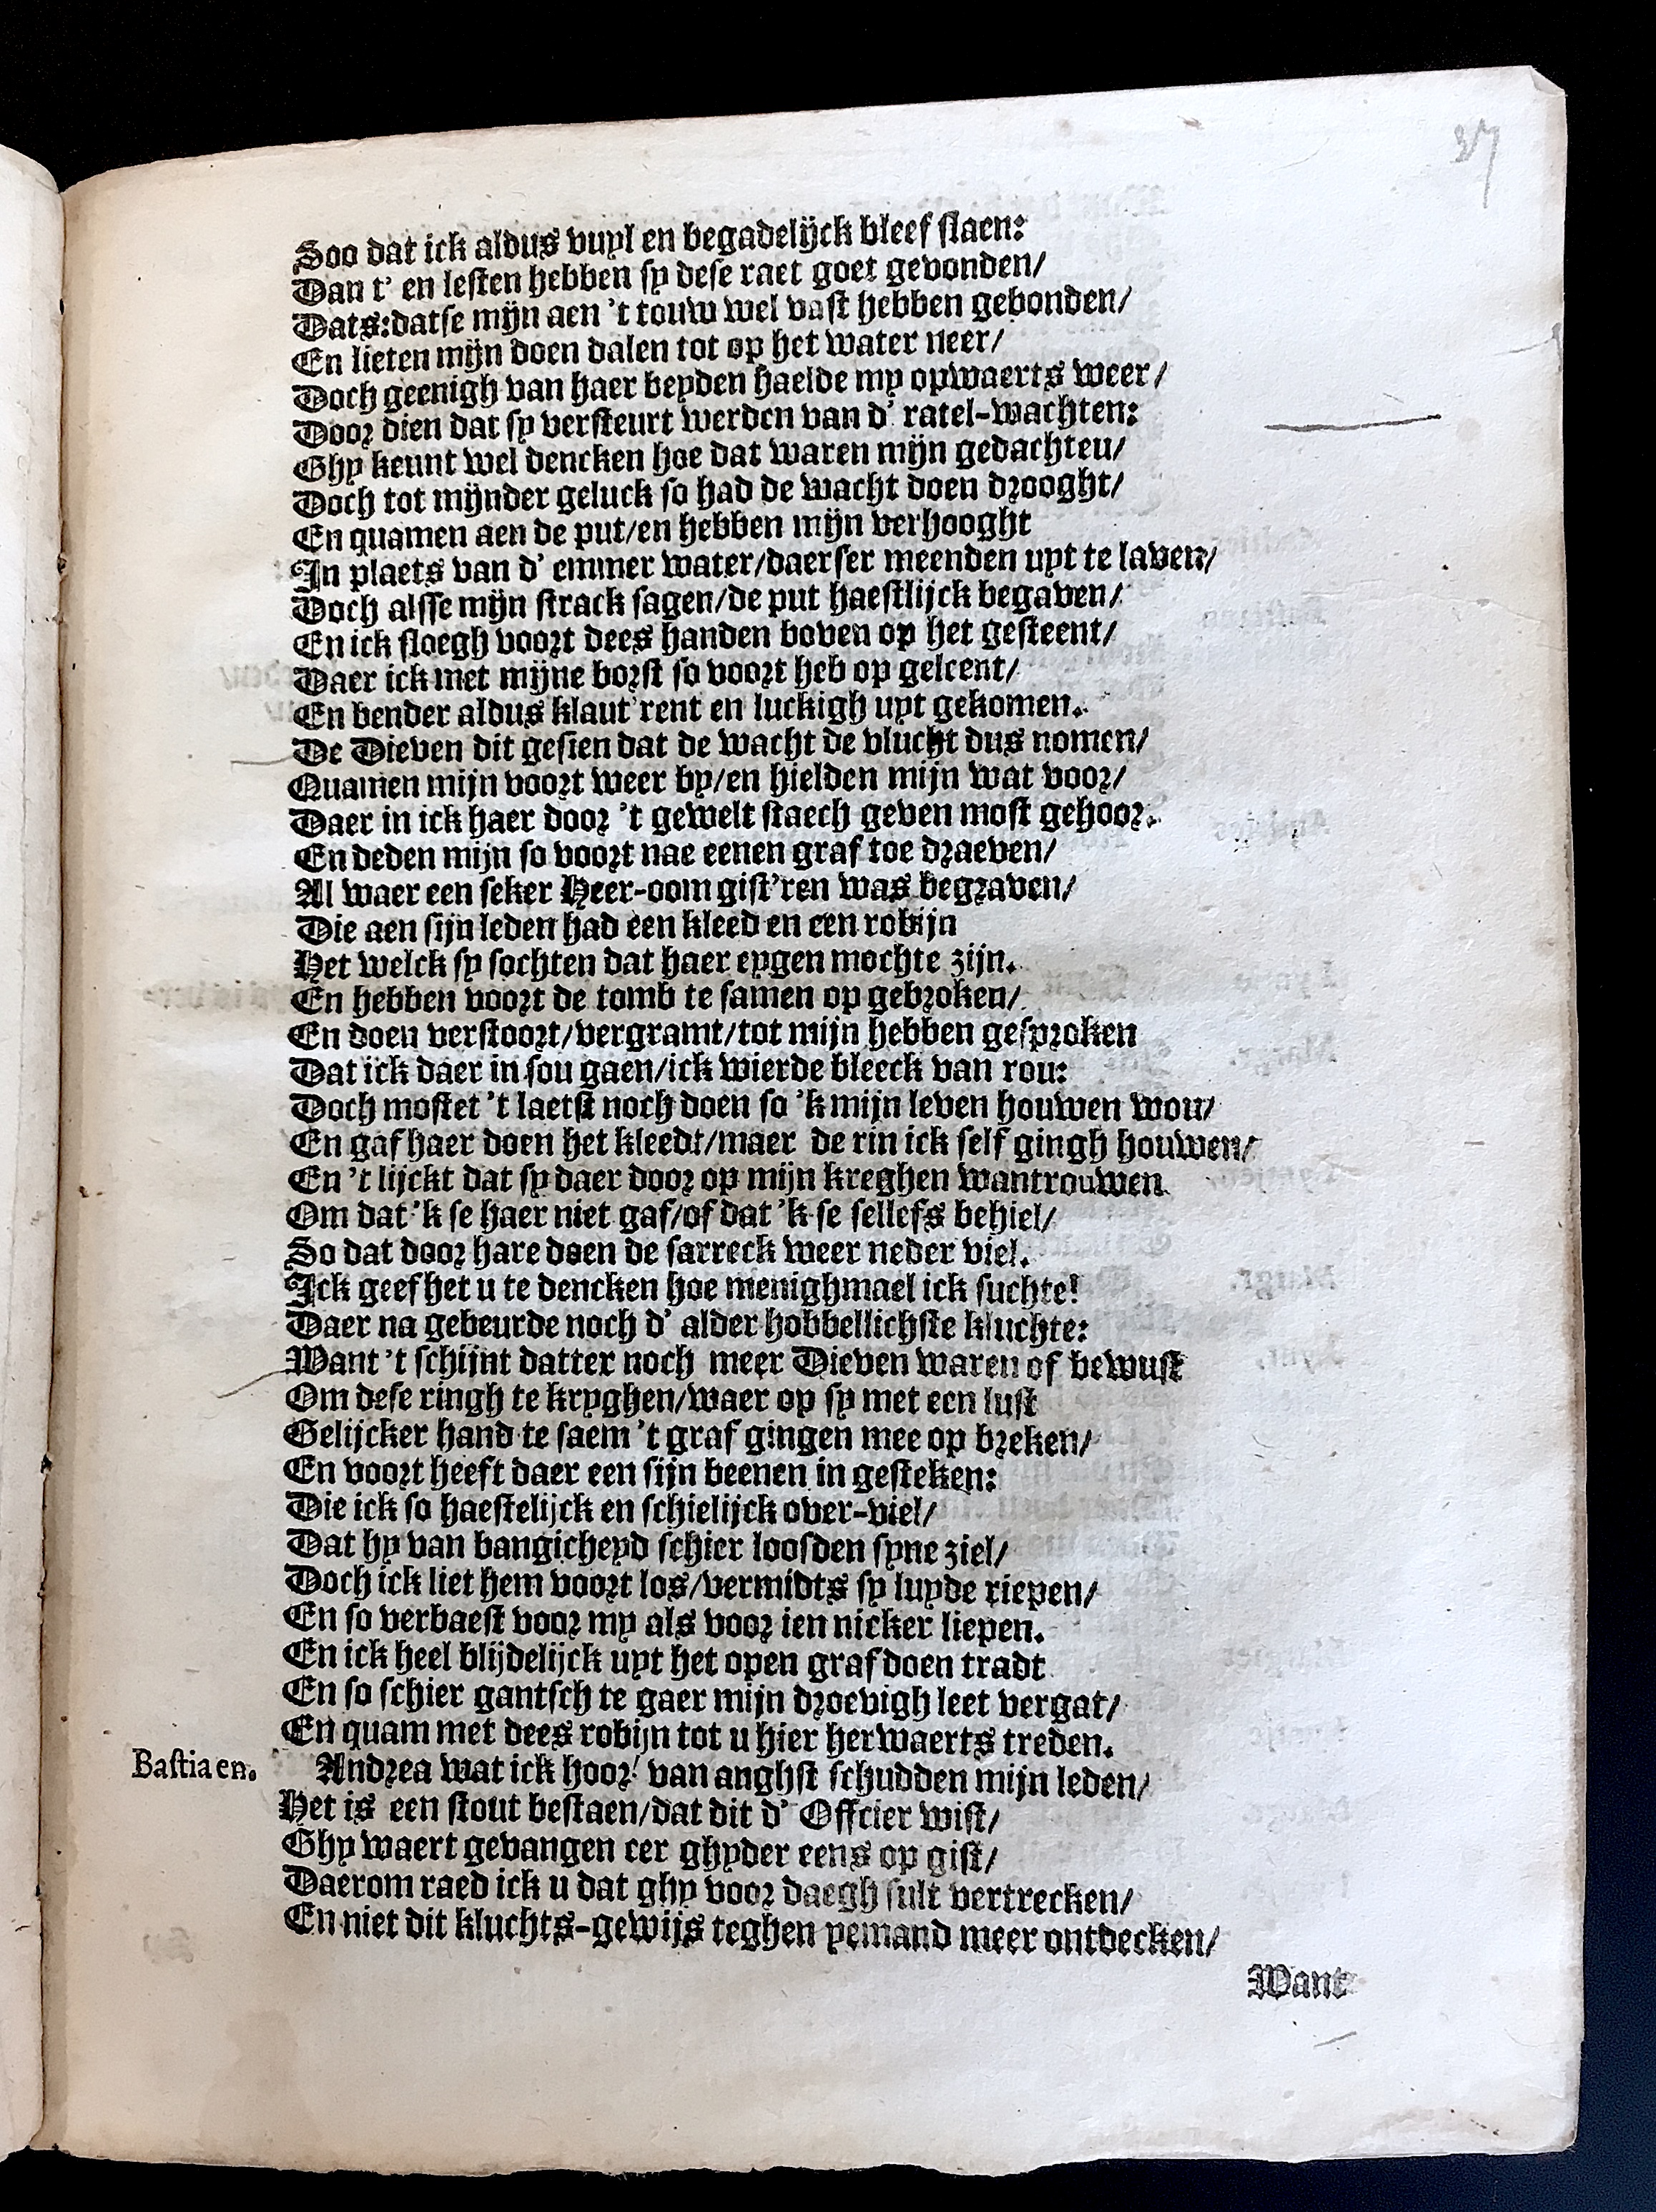 37
Soo dat ick aldus vuyl en begadelijck bleef staen:
Dan t' en lesten hebben sy dese raet goet gevonden/
Dats:datse mijn aen 't touw wel vast hebben gebonden/
En lieten mijn doen dalen tot op het water neer/
Doch geenigh van haer beyden haelde my opwaerts weer/
Door dien dat sy versteurt werden van d' ratel-wachten:
Ghy keunt wel dencken hoe dat waren mijn gedachteu/
Doch tot mijnder geluck so had de wacht doen drooght/
En quamen aen de put/en hebben mijn verhooght
In plaets van d' emmer water/daerser meenden uyt te laven/
Doch alsse mijn strack sagen/de put haestlijck begaven/
En ick sloegh voort dees handen boven op het gesteent/
Daer ick met mijne borst so voort heb op geleent/
En bender aldus klaut'rent en luckigh uyt gekomen.
De Dieven dit gesien dat de wacht de vlucht dus nomen/
Quamen mijn voort weer by/en hielden mijn wat voor/
Daer in ick haer door 't gewelt staech geven most gehoor.
En deden mijn so voort nae eenen graf toe draeven/
Al waer een seker Heer-oom gist'ren was begraven/
Die aen sijn leden had een kleed en een robijn
Het welck sy sochten dat haer eygen mochte zijn.
En hebben voort de tomb te samen op gebroken/
En doen verstoort/vergramt/tot mijn hebben gesproken
Dat ick daer in sou gaen/ick wierde bleeck van rou:
Doch mostet 't laetst noch doen so 'k mijn leven houwen wou/
En gaf haer doen het kleedt/maer de rin ick self gingh houwen/
En 't lijckt dat sy daer door op mijn kreghen wantrouwen
Om dat 'k se haer niet gaf/of dat 'k se sellefs behiel/
So dat door hare doen de sarreck weer neder viel.
Ick geef het u te dencken hoe menighmael ick suchte!
Daer na gebeurde noch d' alder hobbellichste kluchte:
Want 't schijnt datter noch meer Dieven waren of bewust
Om dese ringh te kryghen/waer op sy met een lust
Gelijcker hand te saem 't graf gingen mee op breken/
En voort heeft daer een sijn beenen in gesteken:
Die ick so haestelijck en schielijck over-viel/
Dat hy van bangicheyd schier loosden syne ziel/
Doch ick liet hem voort los/vermidts sy luyde riepen/
En so verbaest voor my als voor ien nicker liepen.
En ick heel blijdelijck uyt het open graf doen tradt
En so schier gantsch te gaer mijn droevigh leet vergat/
En quam met dees robijn tot u hier herwaerts treden.
Bastiaen. Andrea wat ick hoor! van anghst schudden mijn leden/
Het is een stout bestaen/dat dit d' Offcier wist/
Ghy waert gevangen eer ghyder eens op gist/
Daerom raed ick u dat ghy voor daegh sult vertrecken/
En niet dit kluchts-gewijs teghen yemand meer ontdecken/
Want